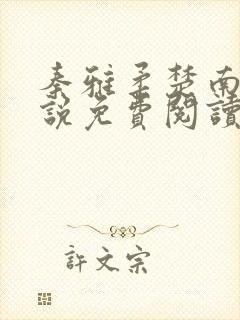 秦雅柔楚南
說免費閱讀
許文宗